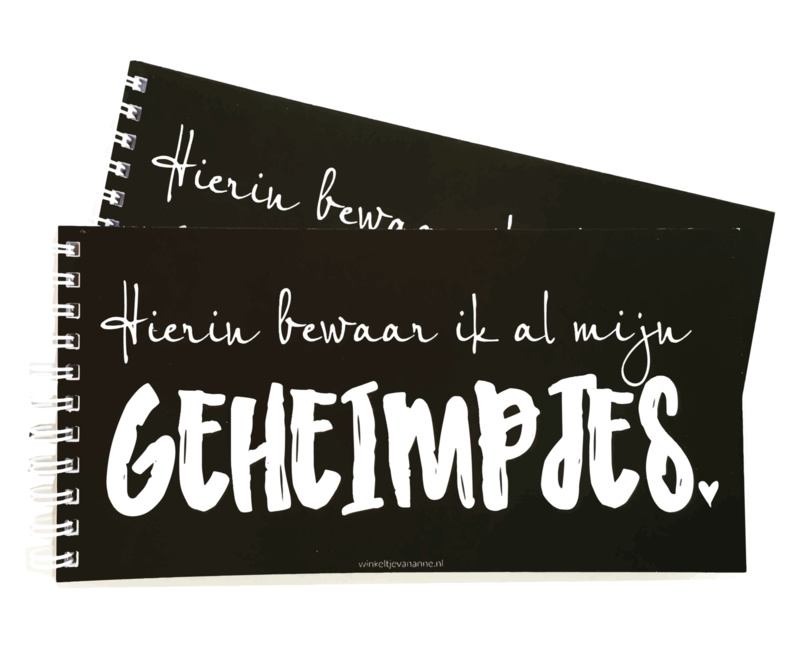 Hierin bewaar
Hierin bewaar ik al mijn
GEHEIMPJES.
winkeltjevananne.nl